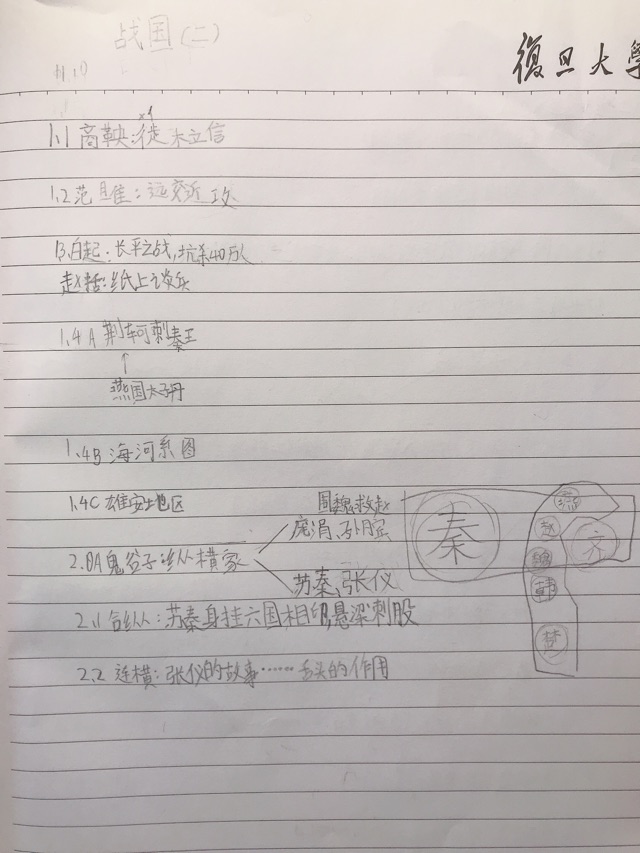 战国(二)
復旦大學
1.1 商鞅:徙木立信
1.2 范雎:远交近攻
1.3 白起:长平之战,坑杀40万人
赵括:纸上谈兵
1.4A 荆轲刺秦王
↑
燕国太子丹
1.4B 海河系图
1.4C 雄安地区
围魏救赵
庞涓、孙膑
2.0A 鬼谷子 纵横家
苏秦、张仪
2.1 合纵:苏秦身挂六国相印,悬梁刺股
2.2 连横:张仪的故事……舌头的作用
秦
燕
赵
齐
魏
韩
楚